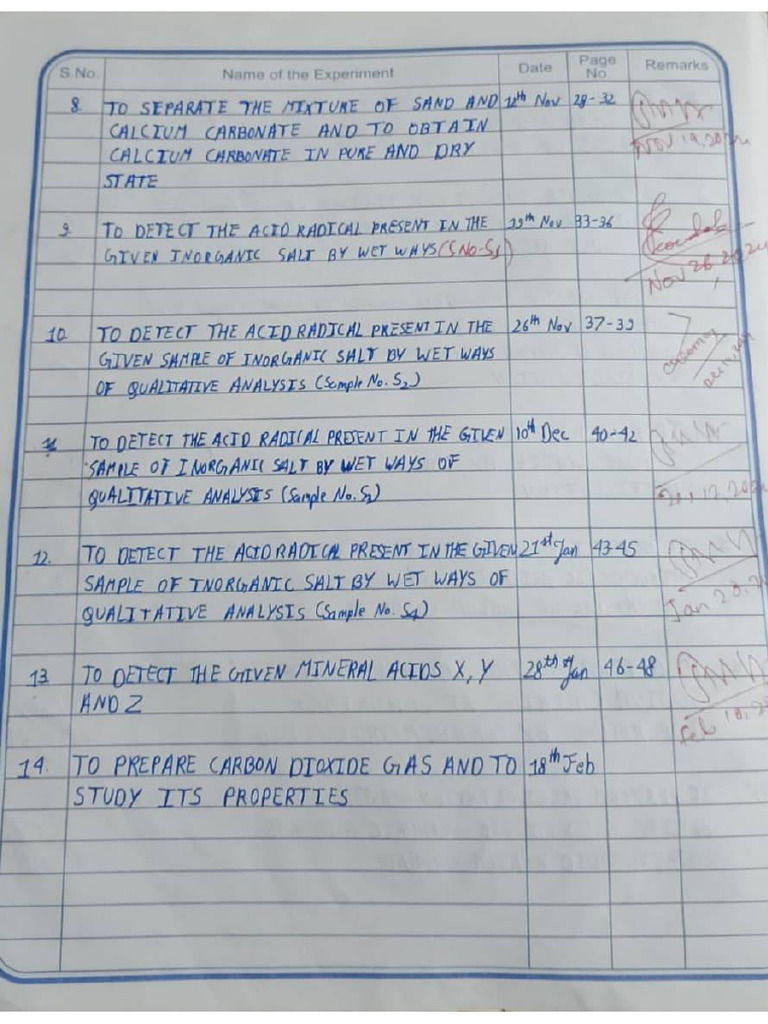 S.No. Name of the Experiment Date Page No. Remarks
8. TO SEPARATE THE MIXTURE OF SAND AND 12th Nov 28-32
CALCIUM CARBONATE AND TO OBTAIN
CALCIUM CARBONATE IN PURE AND DRY Nov 19, 2024
STATE
9. TO DETECT THE ACID RADICAL PRESENT IN THE 19th Nov 33-36
GIVEN INORGANIC SALT BY WET WAYS (S NO-S1)
Nov 26, 2024
10. TO DETECT THE ACID RADICAL PRESENT IN THE 26th Nov 37-39
GIVEN SAMPLE OF INORGANIC SALT BY WET WAYS
OF QUALITATIVE ANALYSIS (Sample No. S2)
TO DETECT THE ACID RADICAL PRESENT IN THE GIVEN 10th Dec 40-42
SAMPLE OF INORGANIC SALT BY WET WAYS OF
QUALITATIVE ANALYSIS (Sample No.
12. TO DETECT THE ACID RADICAL PRESENT IN THE GIVEN 21st Jan 43-45
SAMPLE OF INORGANIC SALT BY WET WAYS OF
QUALITATIVE ANALYSIS (Sample No. S4) Jan
13. TO DETECT THE GIVEN MINERAL ACIDS X, Y 28th of Jan 46-48
AND Z Feb 18,
14. TO PREPARE CARBON DIOXIDE GAS AND TO 18th Feb
STUDY ITS PROPERTIES